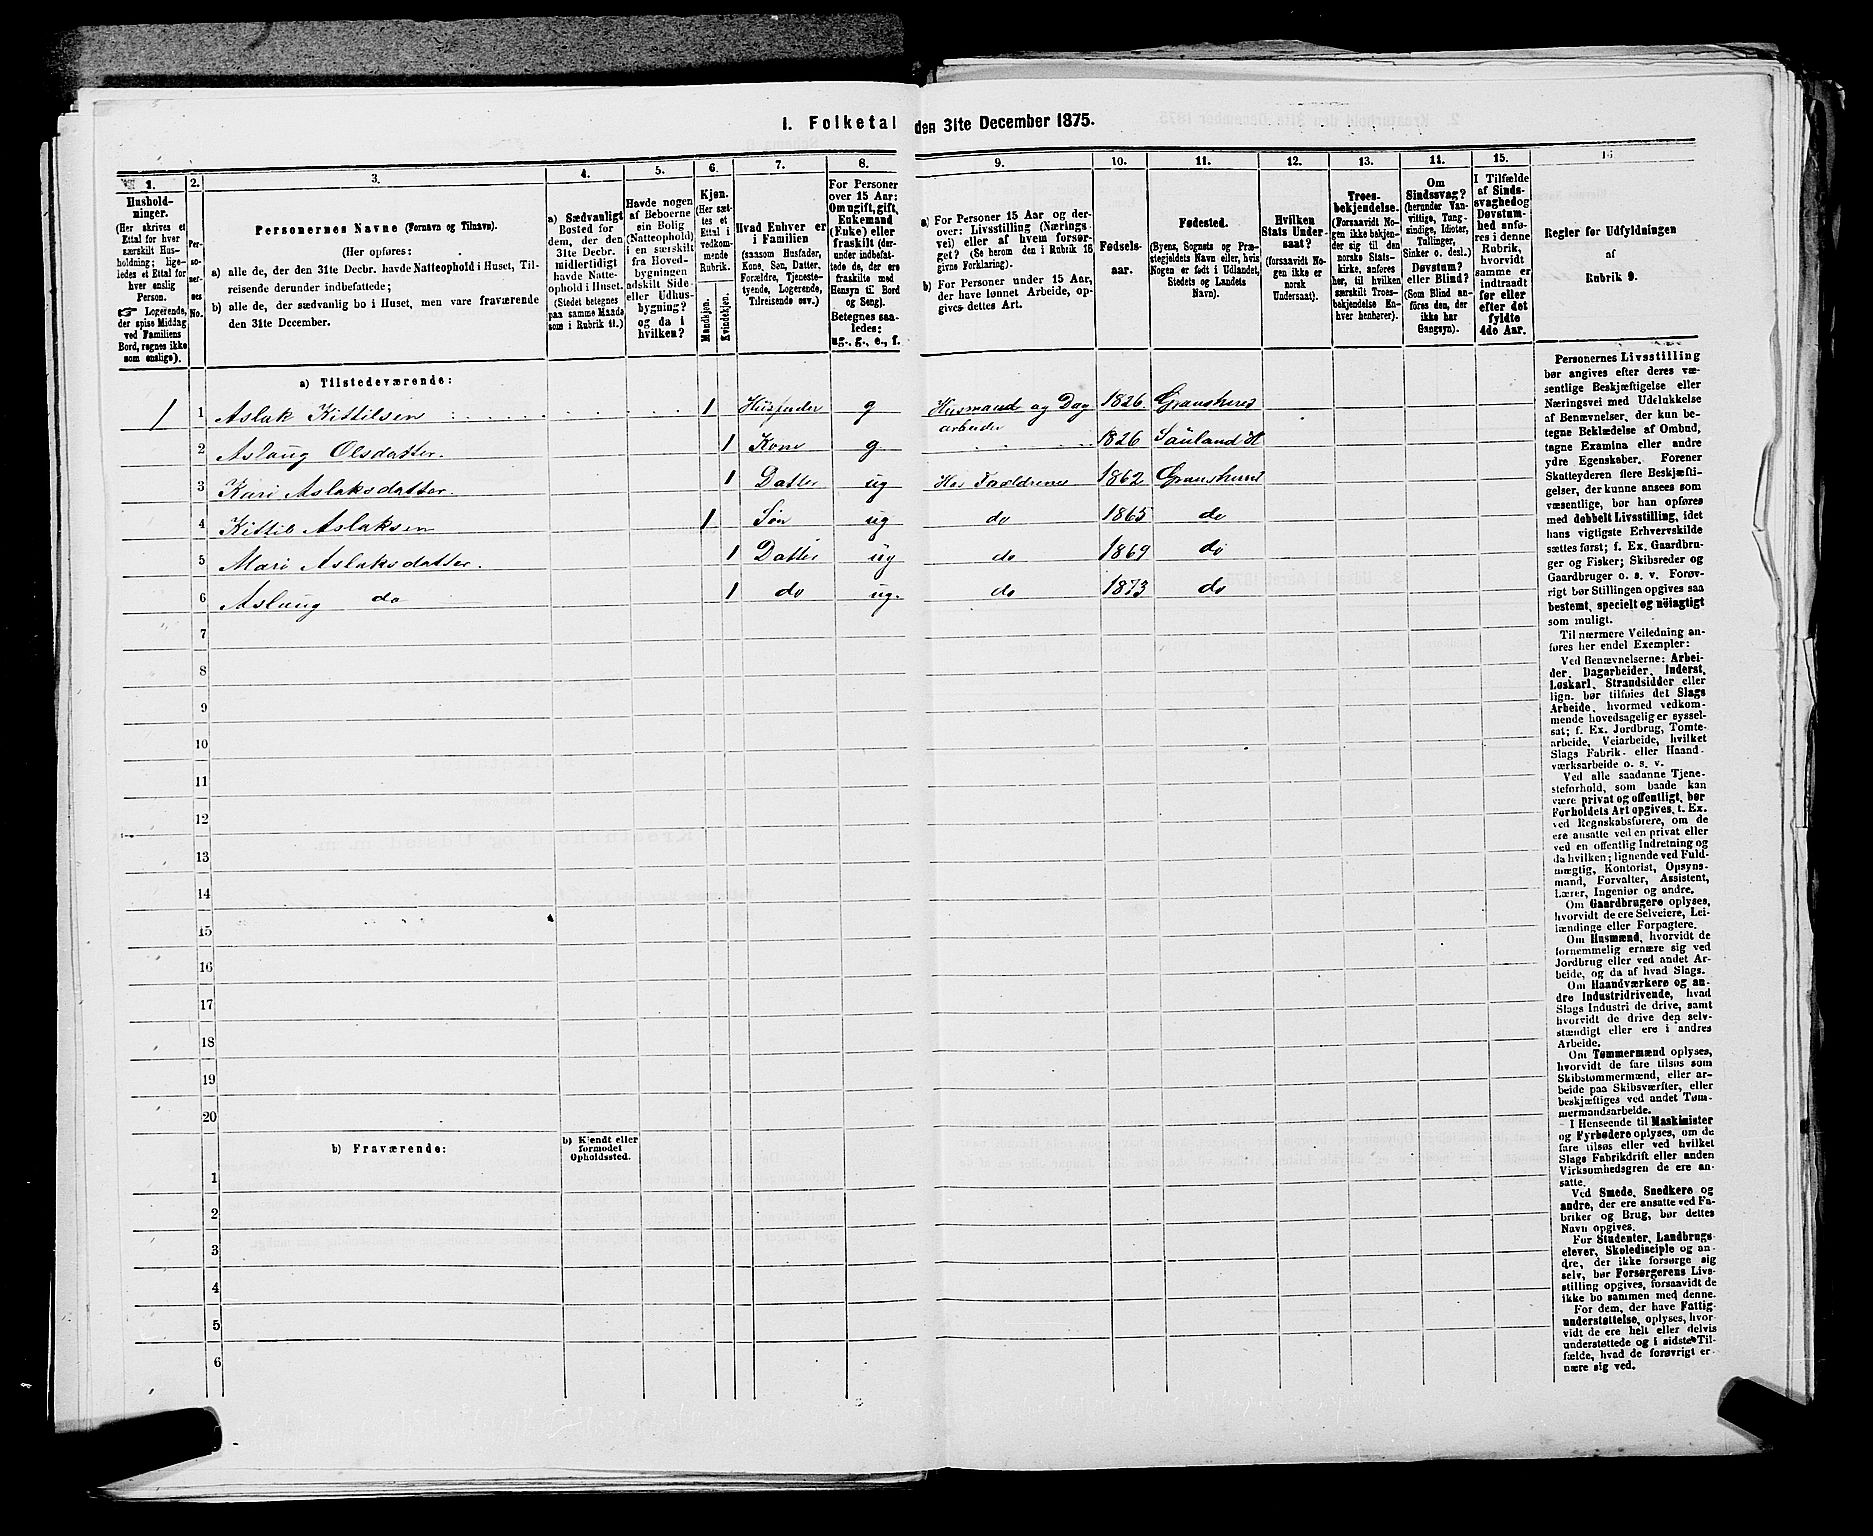 1. Folketal den 31te December 1875.
1.
Hushold-
ninger.
(Her skrives et
Ettal for hver
særskilt Hus-
holdning; lige-
ledes et Ettal for
hver enslig
Person.
Logerende,
der spise Middag
ved Familiens
Bord, regnes ikke
som enslige).
2.
Per-
so-
ner-
nes
No.
3.
Personernes Navne (Fornavn og Tilnavn).
(Her opføres:
a) alle de, der den 31te Decbr. havde Natteophold i Huset, Til-
reisende derunder indbefattede;
b) alle de, der sædvanlig bo i Huset, men vare fraværende
den 31te December.
4.
a) Sædvanligt
Bosted for
dem, der den
31te Decbr.
midlertidigt
havde Natte-
ophold i Huset.
(Stedet betegnes
paa samme Maade
som i Rubrik 11.)
5.
Havde nogen
af Beboerne
ein Bolig
(Natteophold)
i en særskilt
fra Hoved-
bygningen
adskilt Side-
eller Udhus-
bygning?
og da i
hvilken?
6.
Kjøn.
(Her sæt-
tes et
Ettal i
vedkom-
mende
Rubrik.
Mandkjøn.
Kvindekjøn.
7.
Hvad Enhver er
i Familien
(saasom Husfader,
Kone, Søn, Datter,
Forældre, Tjeneste-
tyende, Logerende,
Tilreisende osv.)
8.
For Personer
over 15 Aar:
Om ugift, gift,
Enkemand
(Enke) eller
fraskilt (der-
under indbefat-
tede de, der ere
fraskilte med
Hensyn til Bord
og Seng).
Betegnes saa-
ledes:
ug., g., e., f.
9.
a) For Personer 15 Aar og der-
over: Livsstilling (Nærings-
vei) eller af hvem forsør-
get? (Se herom den i Rubrik 16
givne Forklaring).
b) For Personer under 15 Aar,
der have lønnet Arbeide, op-
gives dettes Art.
10.
Fødsels-
aar.
11.
Fødested.
(Byens, Sognets og Præ-
stegjeldets Navn eller, hvis
Nogen er født i Udlandet,
Stedets og Landets
Navn).
12.
Hvilken
Stats Under-
saat?
(forsaavidt No-
gen ikke er
norsk
Undersaat).
13.
Troes-
bekjendelse.
(Forsaavidt No-
gen ikke bekjen-
der sig til den
norske Stats-
kirke, anføres
her, til hvilken
særskilt Troes-
bekjendelse En-
hver henhører).
11.
Om
Sindssvag?
(herunder Van-
vittige, Tung-
sindige, Idioter,
Tullinger,
Sinker o. desl.)
Døvstum?
eller Blind?
(Som Blind an-
føres den, der
ikke har
Gangsyn).
15.
I Tilfælde
af Sinds-
svaghed og
Døvstum-
hed anfø-
res i denne
Rubrik,
hvorvidt
samme er
indtraadt
før eller
efter det
fyldte
4de Aar.
16
Regler for Udfyldningen
af
Rubrik 9.
a) Tilstedeværende:
1 1 Aslak Kittilsen 1 Husfader g Husmand og Dag 1826. Gransherred
arbeider
2 Aslaug Olsdatter. 1 Kone g 1826 Sauland H
3 Kari Aslaksdatter. 1 Datter ug Hos Forældrene 1862 Gransherred
4 Kittil Aslaksen 1 Søn ug do 1865 do
5 Mari Aslaksdatter. 1 Datter ug do 1869 do
6 Aslaug do 1 do ug. do 1873 do
7
8
9
10
11
12
13
14
15
16
17
18
19
20
b) Fraværende:
b) Kjendt eller
formodet
Opholdssted.
1
2
3
4
5
6
Personernes Livsstilling
bør angives efter deres væ-
sentlige Beskjæftigelse eller
Næringsvei med Udelukkelse
af Benævnelser, der kun be-
tegne Beklædelse af Ombud,
tagne Examina eller andre
ydre Egenskaber. Forener
Skatteyderen flere Beskjæfti-
gelser, der kunne ansees som
væsentlige, bør han opføres
med dobbelt Livsstilling, idet
hans vigtigste Erhvervskilde
sættes først; f. Ex. Gaardbru-
ger og Fisker; Skibsreder og
Gaardbruger o. s. v. Forøv-
rigt bør Stillingen opgives saa
bestemt, specielt og nøiagtigt
som muligt.
Til nærmere Veiledning an-
føres her endel Exempler:
Ved Benævnelserne: Arbei-
der, Dagarbeider, Inderst,
Løskarl, Strandsidder eller
lign. bør tilføies det Slags
Arbeide, hvormed vedkom-
mende hovedsagelig er syssel-
sat; f. Ex. Jordbrug, Tomte-
arbeide, Veiarbeide, hvilket
Slags Fabrik- eller Haand-
værksarbeide o. s. v.
Ved alle saadanne Tjene-
steforhold, som baade kan
være privat og offentligt, bør
Forholdets Art opgives, t. Ex.
ved Regnskabsførere, om de
ere ansatte ved en privat eller
ved en offentlig Indretning og
da hvilken; lignende ved Fuld-
mægtig, Kontorist, Opsyns-
mand, Forvalter, Assistent,
Lærer, Ingeniør og andre.
Om Gaardbrugere oplyses,
hvorvidt de ere Selveiere, Lei-
lændinge eller Forpagtere.
Om Husmænd, hvorvidt de
fornemmelig ernære sig ved
Jordbrug eller ved andet Ar-
beide, og da af hvad Slags.
Om Haandværkere og an-
dre Industridrivende, hvad
Slags Industri de drive, samt
hvorvidt de drive den selv-
stændigt eller ere i andres
Arbeide.
Om Tømmermænd oplyses,
hvorvidt de fare tilsøs som
Skibstømmermænd, eller ar-
beide paa Skibsværfter, eller
beskjæftiges ved andet Tøm-
mermandsarbeide.
I Henseende til Maskinister
og Fyrbødere oplyses, om de
fare tilsøs eller ved hvilket
Slags Fabrikdrift eller anden
Virksomhedsgren de ere an-
satte.
Ved Smede, Snedkere og
andre, der ere ansatte ved Fa-
briker og Brug, bør dettes
Navn opgives.
For Studenter, Landbrugs-
elever, Skoledisciple og an-
dre, der ikke forsørge sig
selv, bør Forsørgerens Livs-
stilling opgives, forsaavidt de
ikke bo sammen med denne.
For dem, der have Fattig-
understøttelse, oplyses, hvor-
vidt de ere helt eller delvis
understøttede og i sidste Til-
fælde, hvad de forøvrigt er-
nære sig ved.